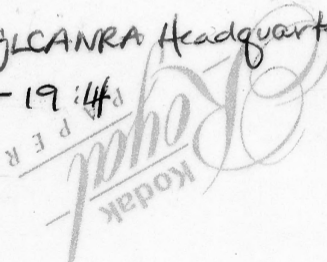 GLCANRA Headquart
- 19:44
Kodak
Royal
PAPER